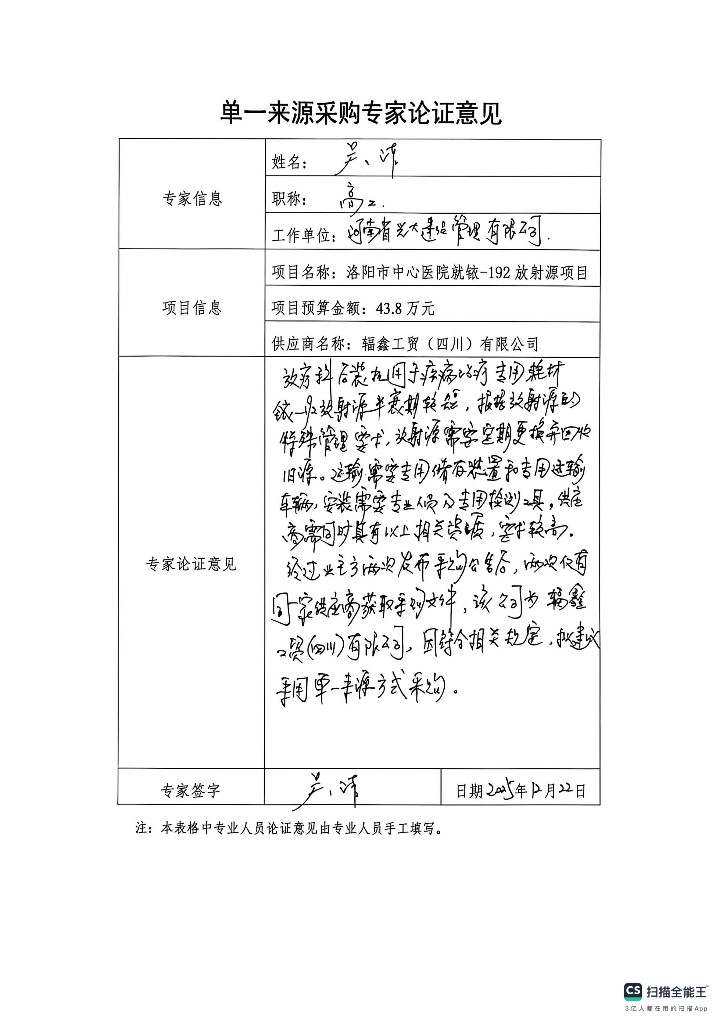 单一来源采购专家论证意见
专家信息
姓名：
职称：高工
工作单位：河南省光大建设管理有限公司.
项目信息
项目名称：洛阳市中心医院就铱-192放射源项目
项目预算金额：43.8万元
供应商名称：辐鑫工贸（四川）有限公司
专家论证意见
放疗科后装机用于疾病治疗专用耗材
铱-192放射源半衰期较短，根据放射源的
特殊管理要求，放射源需要定期更换并回收
旧源。运输需要专用储存装置和专用运输
车辆，安装需要专业人员及专用检测工具，供应
商需同时具有以上相关资源，要求较高。
经过业主方两次发布采购公告后，两次仅有
同一家供应商获取采购文件，该公司为辐鑫
工贸（四川）有限公司，因符合相关规定，拟建议
采用单一来源方式采购。
专家签字
日期2025年12月22日
注：本表格中专业人员论证意见由专业人员手工填写。
CS 扫描全能王
3亿人都在用的扫描App